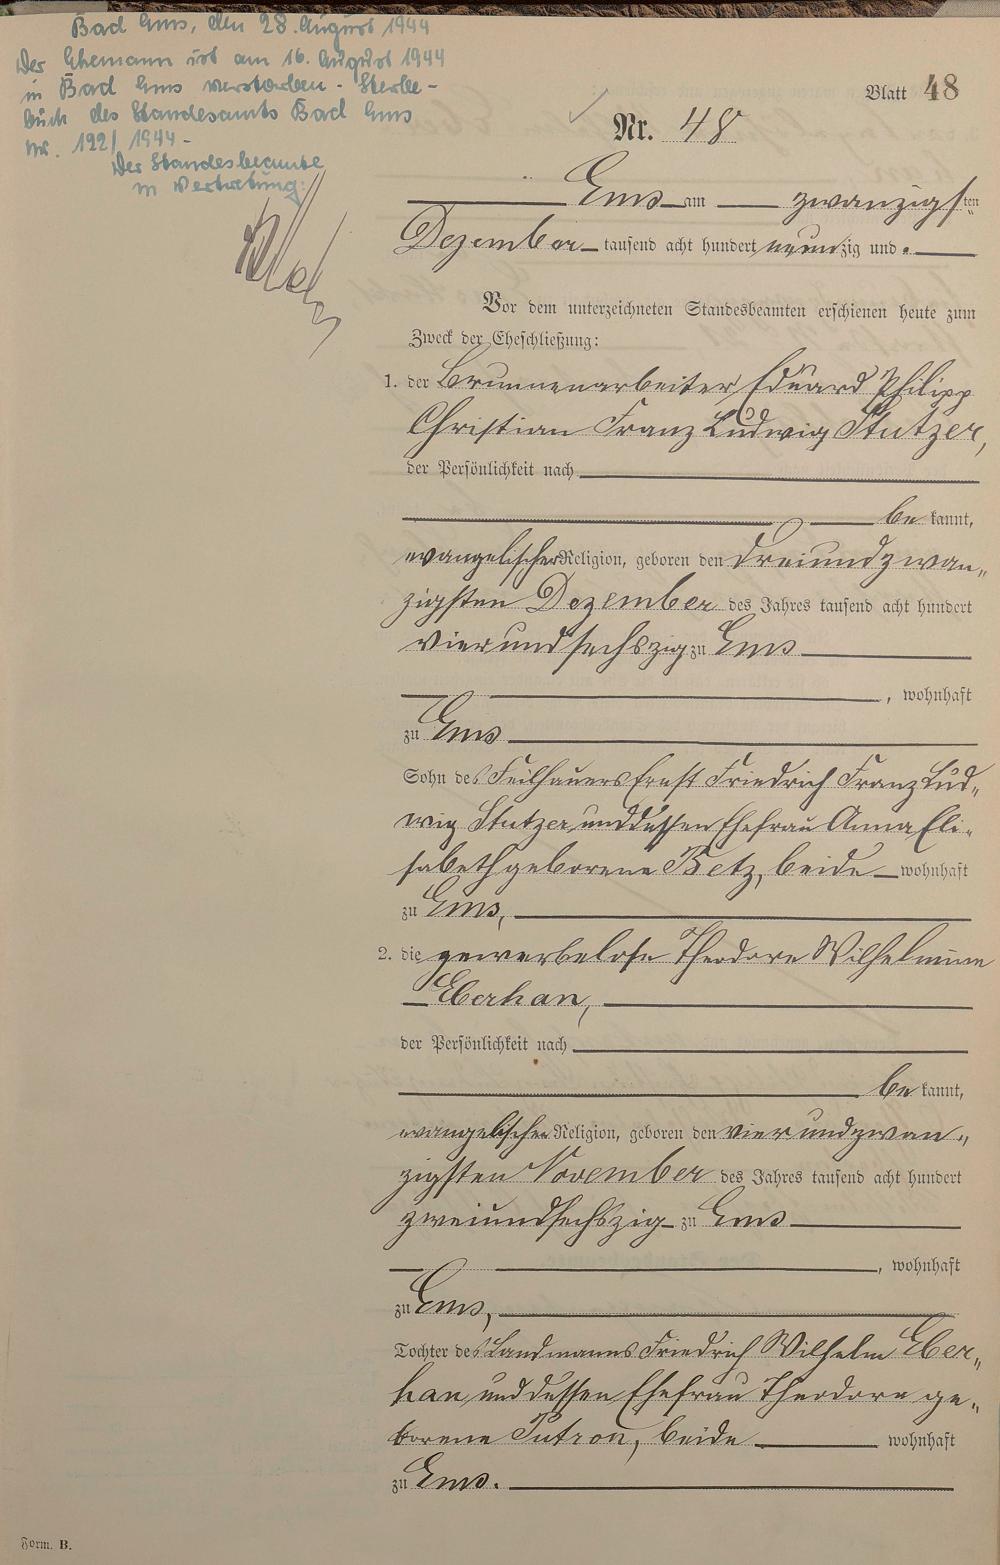 Bad Ems, den 28. August 1944
Der Ehemann ist am 16. August 1944
in Bad Ems verstorben - Sterbe-
buch des Standesamts Bad Ems
Nr. 122/1944 -
Der Standesbeamte
in Vertretung:
Blatt 48
Nr. 48
Ems am zwanzigsten
Dezember tausend acht hundert neunzig und
Vor dem unterzeichneten Standesbeamten erschienen heute zum
Zweck der Eheschließung:
1. der Brunnenarbeiter Eduard Philipp
Christian Franz Ludwig Stutzer,
der Persönlichkeit nach
be kannt,
evangelischer Religion, geboren den dreiundzwan-
zigsten Dezember des Jahres tausend acht hundert
vierundsechszig zu Ems
, wohnhaft
zu Ems
Sohn des Feilhauers Ernst Friedrich Franz Lud-
wig Stutzer und dessen Ehefrau Anna Eli-
sabeth geborene Betz, beide wohnhaft
zu Ems,
2. die gewerbelose Theodore Wilhelmine
Eberhan,
der Persönlichkeit nach
be kannt,
evangelischer Religion, geboren den vierundzwan-
zigsten November des Jahres tausend acht hundert
zweiundsechszig zu Ems
, wohnhaft
zu Ems,
Tochter des Landmanns Friedrich Wilhelm Eber-
han und dessen Ehefrau Theodore ge-
borene Putron, beide wohnhaft
zu Ems.
Form. B.